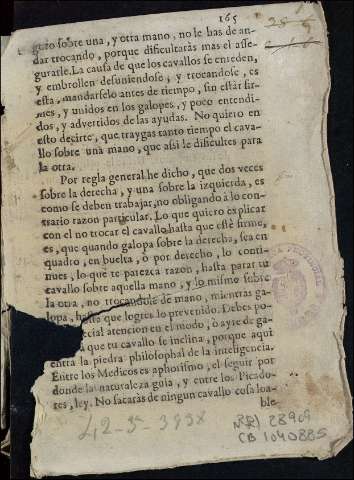 165
guro sobre una, y otra mano, no le has de an-
dar trocando, porque dificultaràs mas el asse-
gurarle. La causa de que los cavallos se enreden,
y embrollen desuniendose, y trocandose, es
esta, mandarselo antes de tiempo, sin estàr fir-
mes, y unidos en los galopes, y poco entendi-
dos, y advertidos de las ayudas. No quiero en
esto decirte, que traygas tanto tiempo el cava-
llo sobre una mano, que assi le dificultes para
la otra.
Por regla general he dicho, que dos veces
sobre la derecha, y una sobre la izquierda, es
como se deben trabajar, no obligando à lo con-
trario razon particular. Lo que quiero explicar
con el no trocar el cavallo hasta que estè firme,
es, que quando galopa sobre la derecha, sea en
quadro, en buelta, ò por derecho, lo conti-
nues, lo que te parezca razon, hasta parar tu
cavallo sobre aquella mano, y lo mismo sobre
la otra, no trocandole de mano, mientras ga-
lopa, hasta que logres lo prevenido. Debes po-
ecial atencion en el modo, ò ayre de ga-
à que tu cavallo se inclina, porque aqui
entra la piedra philosophal de la inteligencia.
Entre los Medicos es aphorismo, el seguir por
donde la naturaleza guia, y entre los Picado-
res, ley. No sacaràs de ningun cavallo cosa loa-
ble
42-5-3958
28909
CB 1040885